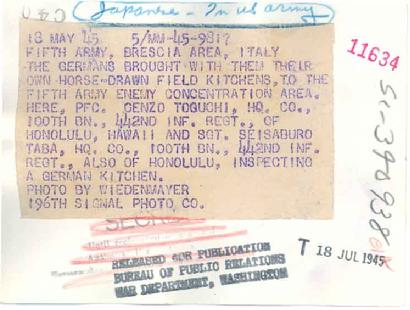 (Japanese - In US army)
18 MAY 45      5/MM-45-9817
FIFTH ARMY, BRESCIA AREA, ITALY
THE GERMANS BROUGHT WITH THEM THEIR
OWN HORSE-DRAWN FIELD KITCHENS, TO THE
FIFTH ARMY ENEMY CONCENTRATION AREA.
HERE, PFC. GENZO TOGUCHI, HQ. CO.,
100TH BN., 442ND INF. REGT., OF
HONOLULU, HAWAII AND SGT. SEISABURO
TABA, HQ. CO., 100TH BN., 442ND INF.
REGT., ALSO OF HONOLULU, INSPECTING
A GERMAN KITCHEN.
PHOTO BY WIEDENMAYER
196TH SIGNAL PHOTO CO.
11634
SC-390938
SECRET
RELEASED FOR PUBLICATION
BUREAU OF PUBLIC RELATIONS
WAR DEPARTMENT, WASHINGTON
T 18 JUL 1945